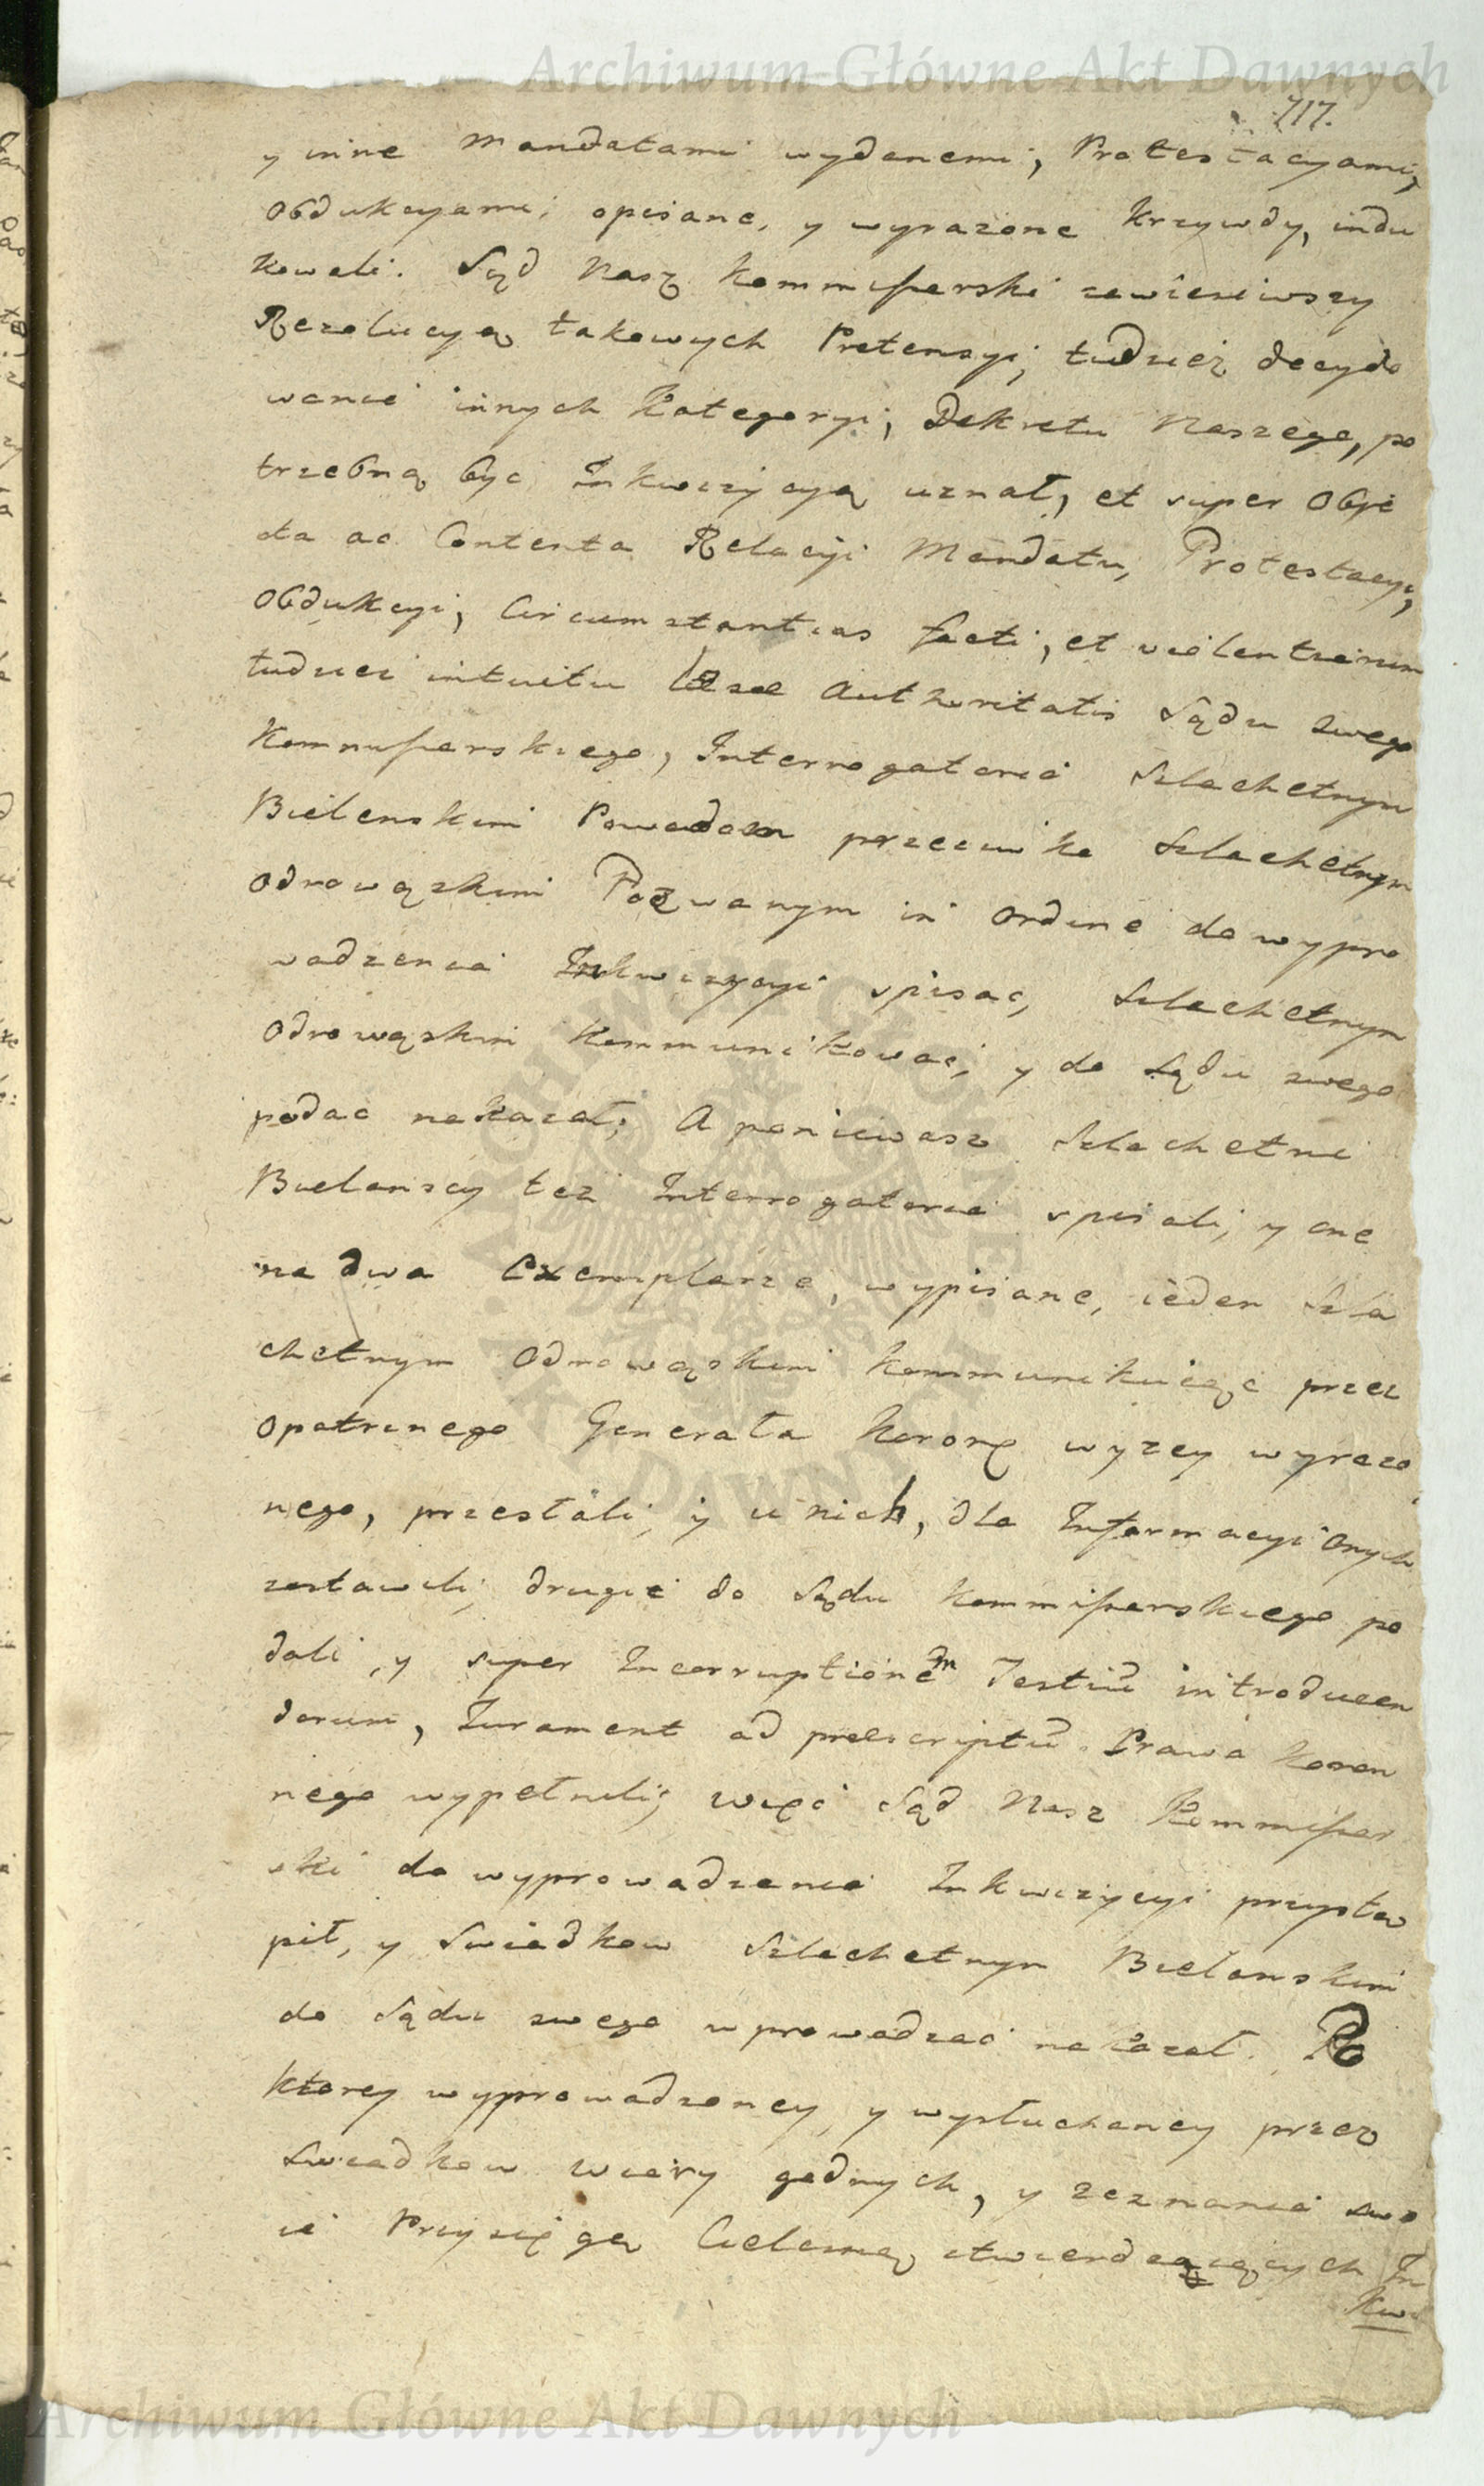 Archiwum Główne Akt Dawnych
717.
y inne Mandatami wydanemi, Protestacyami,
Obdukcyami, opisane, y wyrazone Krzywdy, indu
kowali. Sąd Nasz Kommissarski zawiesiwszy
Rezolucyą takowych Pretensyi, tudzież decydo
wanie innych Kategoryi, Dekretu Naszego, po
trzebną byc Inkwizycyą uznał, et super Obje
cta ac Contenta Relacyi Mandatu, Protestacyi,
Obdukcyi, Circumstantias facti, et violentiarum
tudziez intuitu læsæ Authoritatis Sądu swego
Kommissarskiego, Interrogatoria Szlachetnym
Bielenskim Powodom przeciwko Szlachetnym
Odrowąskim Pozwanym in ordine do wypro
wadzenia Inkwizycyi spisac, Szlachetnym
Odrowąskim Kommunikowac, y do Sądu swego
podac nakazał; A poniewasz Szlachetni
Bielanscy też Interrogatoria spisali, y one
na dwa Exemplarze, wypisane, ieden Szla
chetnym Odrowąskim kommunikuiąc przez
opatrznego Generała Koronę wyzey wyrazo
nego, przestali, y u nich, dla Informacyi onych
zostawili, drugie do Sądu Kommissarskiego po
dali, y super Incorruptionem Testiu introducen
dorum, Jurament ad præscriptu Prawa Koron
nego wypełnili; więc Sąd Nasz Kommissar
ski do wyprowadzenia Inkwizycyi przystą
pił, y Swiadkow Szlachetnym Bielanskim
do Sądu swego wprowadzac nakazał. Po
ktorey wyprowadzoney, y wysłuchaney przez
Swiadkow wiary godnych, y zeznania swo
ie Przysięgą Cielesną stwierdzaiących In
Kwi
ARCHIWUM GŁÓWNE AKT DAWNYCH
Archiwum Główne Akt Dawnych